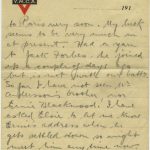 Y.M.C.A.
191
to Paris very soon. My luck
seems to be very much in
at present. Had a yarn
Jack Forbes he joined
up a couple of days ago
but is not with our batt.
So far I have not seen
brother nor
Ernie Blackwood. I have
asked Elsie to let me know
Ernie's address when he
gets settled down so might
meet him any time now